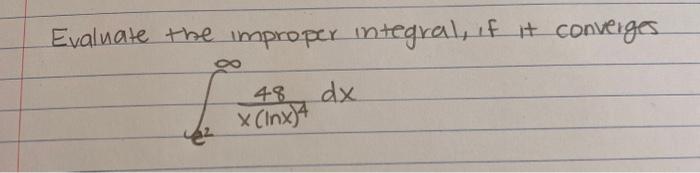 Evaluate the improper integral, if it converges
∞
∫ 48 dx
x(lnx)4
e2